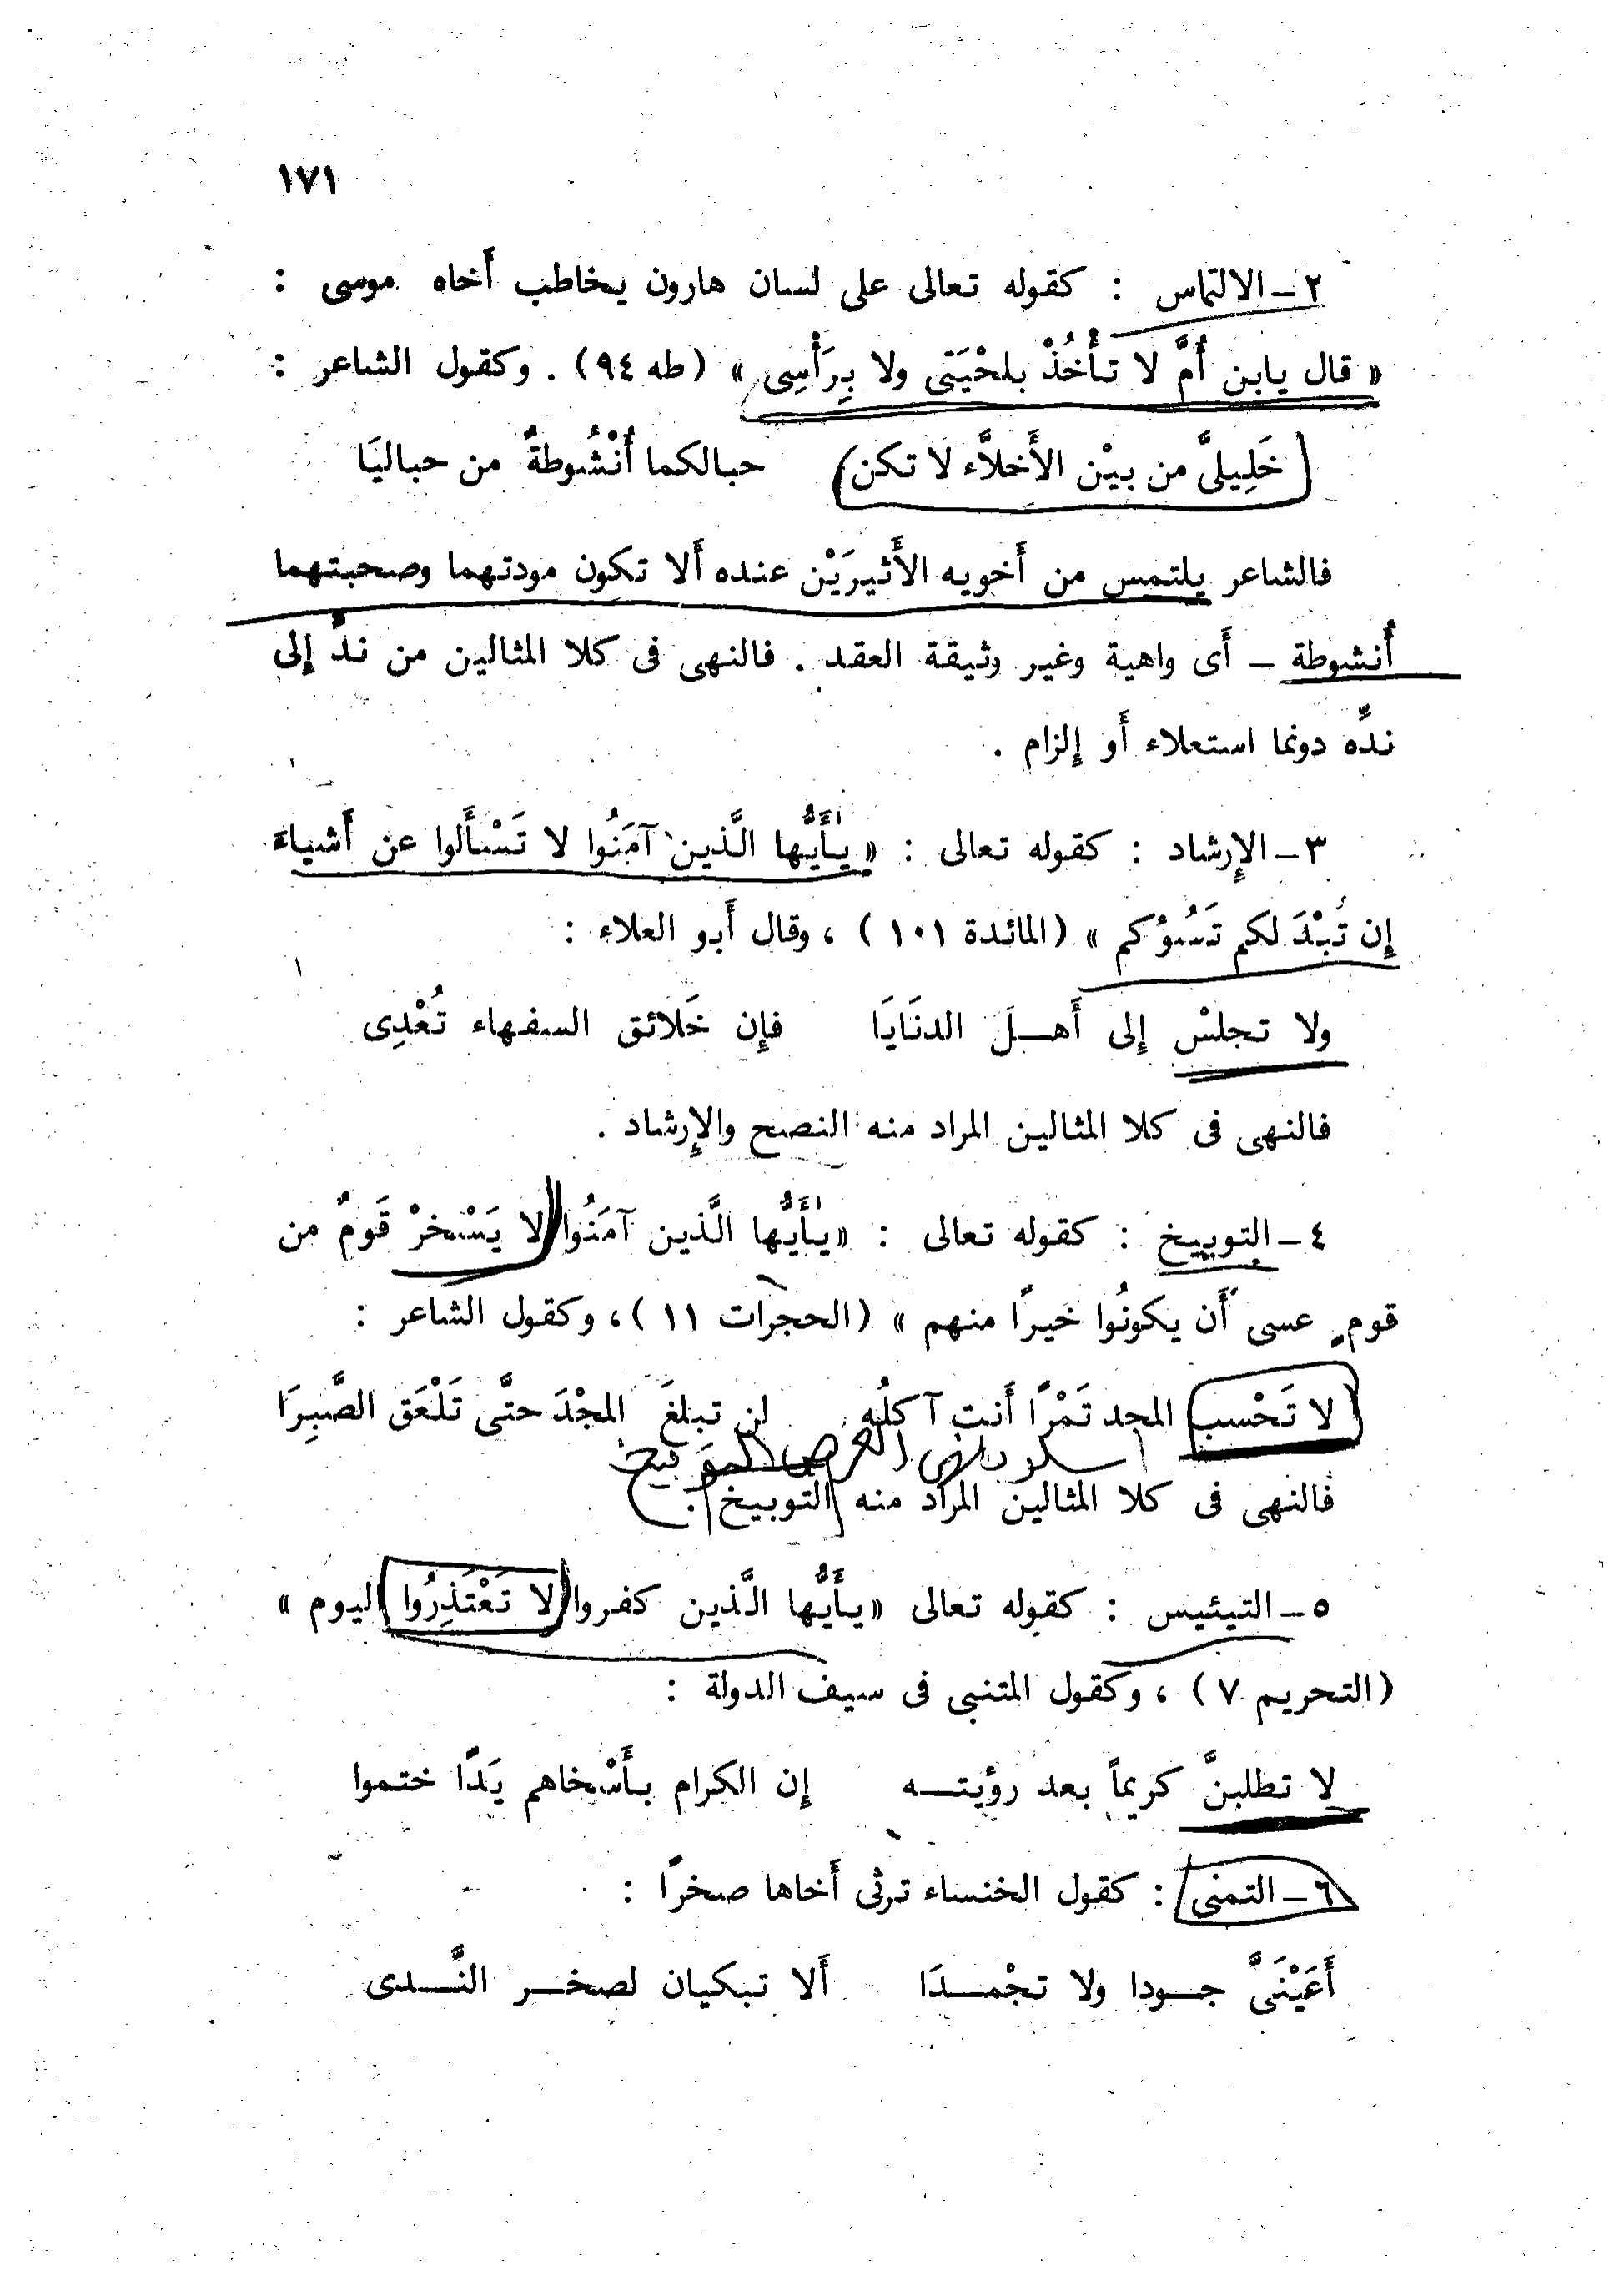 ١٧١
٢ـ الالتماس : كقوله تعالى على لسان هارون يخاطب أَخاه موسى :
« قال يابن أُمَّ لا تأْخُذْ بلحْيَتى ولا بِرَأْسِى » (طه ٩٤) . وكقول الشاعر :
خَلِيلىَّ من بيْن الأَخلاَّء لا تكن حبالكما أُنْشُوطةً من حباليَا
فالشاعر يلتمس من أَخويه الأَثيرَيْن عنده أَلا تكون مودتهما وصحبتهما
أُنشوطة ـ أَى واهية وغير وثيقة العقد . فالنهى فى كلا المثالين من ندٍّ إلى
ندِّه دونما استعلاء أَو إلزام .
٣ـ الإرشاد : كقوله تعالى : « يأَيُّها الَّذين آمَنُوا لا تَسْأَلوا عن أَشياءَ
إن تُبْدَ لكم تَسُؤْكم » (المائدة ١٠١) ، وقال أَبو العلاء :
ولا تجلسْ إلى أَهـلَ الدنَايَا فإن خَلائق السفهاء تُعْدِى
فالنهى فى كلا المثالين المراد منه النصح والإرشاد .
٤ـ التوبيخ : كقوله تعالى : «يأَيُّها الَّذين آمَنُوا لا يَسْخرْ قَومٌ من
قوم عسى أَن يكونُوا خيرًا منهم » (الحجرات ١١) ، وكقول الشاعر :
لا تَحْسب المجد تَمْرًا أَنت آكلُه لن تبلغَ المجْدَ حتَّى تَلْعَق الصَّبِرَا
اسلوب نهى الغرض التوبيخ
فالنهى فى كلا المثالين المراد منه التوبيخ .
٥ـ التيئيس : كقوله تعالى «يأَيُّها الَّذين كفروا لا تَعْتَذِرُوا اليوم »
(التحريم ٧) ، وكقول المتنبى فى سيف الدولة :
لا تطلبنَّ كريماً بعد رؤيتـه إن الكرام بأَسْخاهم يَدًا ختموا
٦ـ التمنى : كقول الخنساء ترثى أَخاها صخرًا :
أَعَيْنَىَّ جـودا ولا تجْمـدَا أَلا تبكيان لصخـر النَّـدى